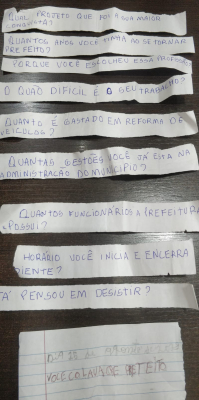 QUAL PROJETO QUE FOI A SUA MAIOR
CONQUISTA?
QUANTOS ANOS VOCÊ TINHA AO SE TORNAR
PREFEITO?
PORQUE VOCÊ ESCOLHEU ESSA PROFISSÃO
O QUÃO DIFICIL É O SEU TRABALHO?
QUANTO É GASTADO EM REFORMA DE
VEÍCULOS?
QUANTAS GESTÕES VOCÊ JÁ ESTA NA
ADMINISTRAÇÃO DO MUNICIPIO?
QUANTOS FUNCIONÁRIOS A PREFEITURA
POSSUI?
HORÁRIO VOCÊ INICIA E ENCERRA
DIENTE?
TÁ PENSOU EM DESISTIR?